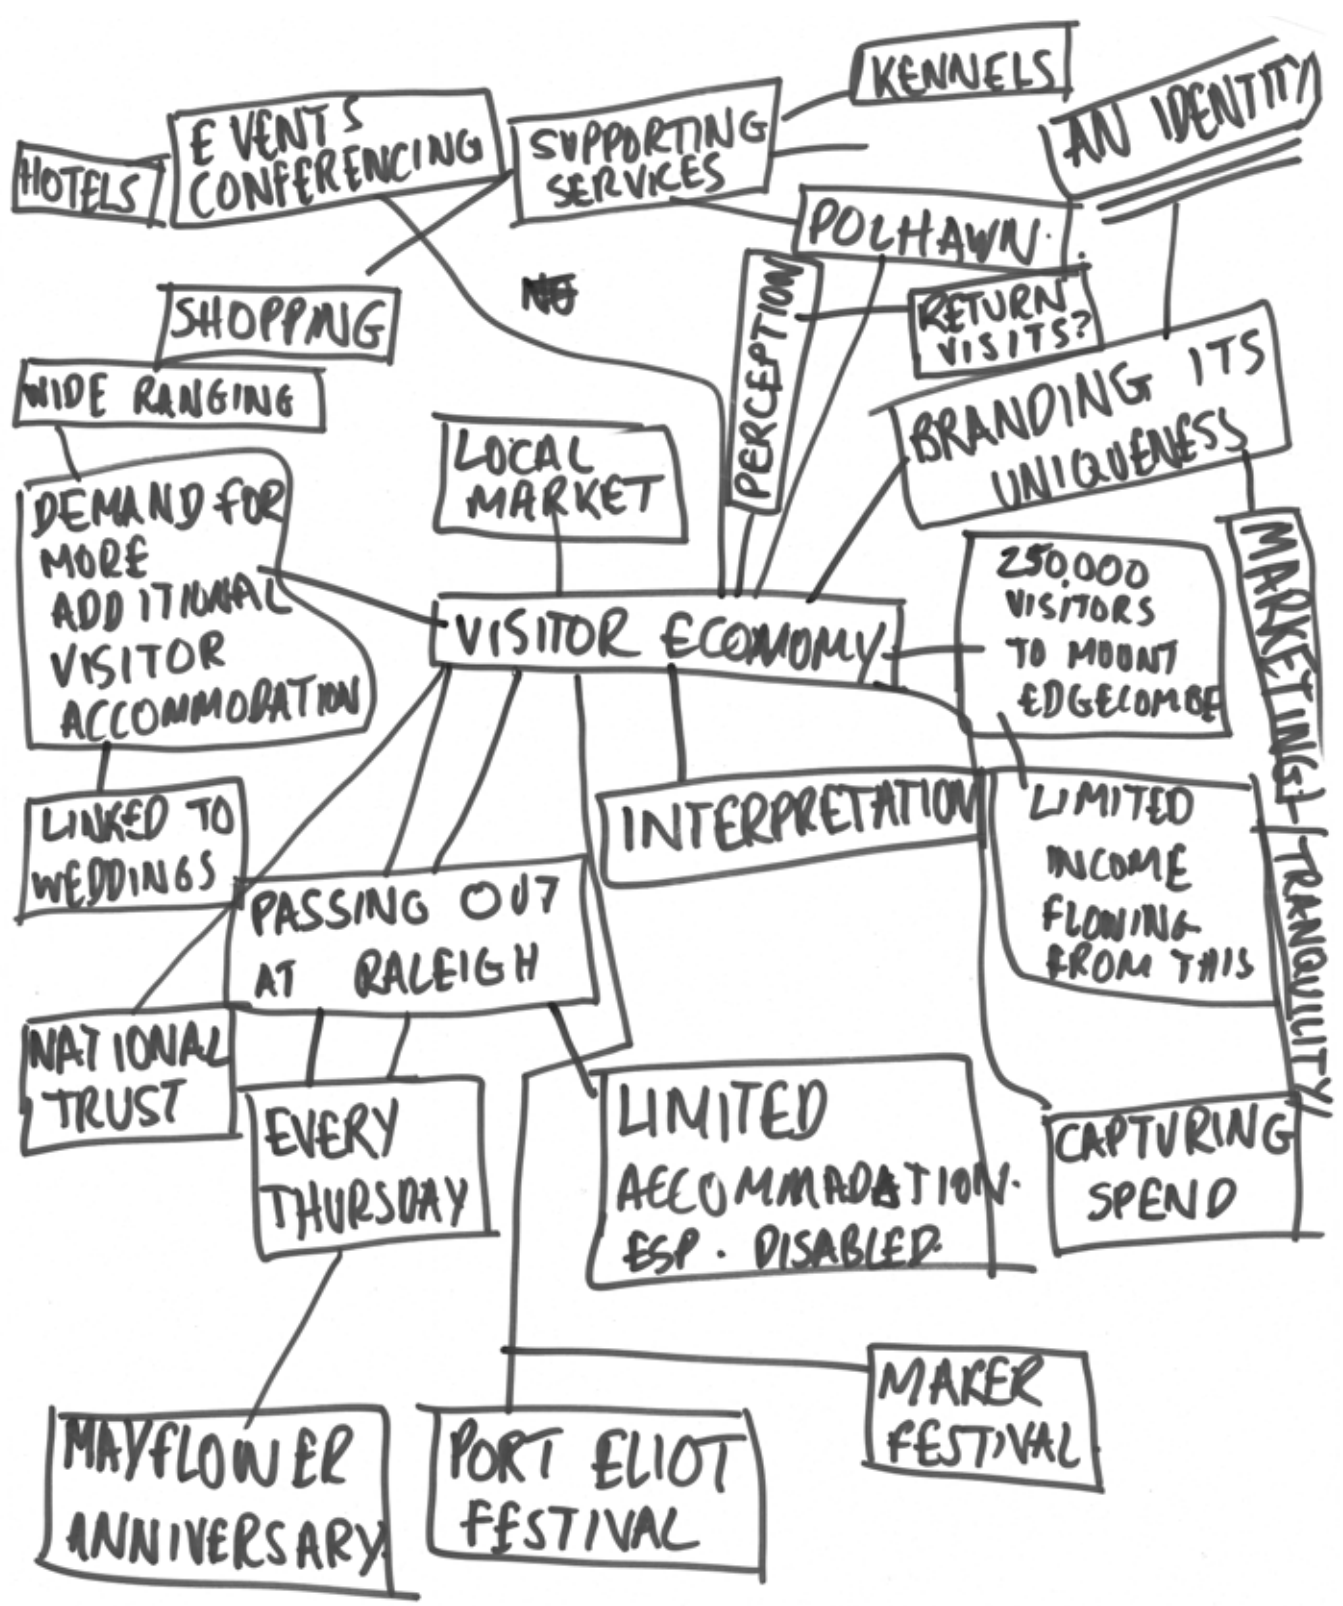 KENNELS
AN IDENTITY
EVENTS
CONFERENCING
SUPPORTING
SERVICES
HOTELS
POLHAWN.
PERCEPTION
RETURN
VISITS?
NO
SHOPPING
WIDE RANGING
BRANDING ITS
UNIQUENESS
LOCAL
MARKET
DEMAND FOR
MORE
ADDITIONAL
VISITOR
ACCOMMODATION
VISITOR ECONOMY
250,000
VISITORS
TO MOUNT
EDGECOMBE
MARKETING / TRANQUILITY
LINKED TO
WEDDINGS
INTERPRETATION
LIMITED
INCOME
FLOWING
FROM THIS
PASSING OUT
AT RALEIGH
NATIONAL
TRUST
EVERY
THURSDAY
LIMITED
ACCOMMADATION.
ESP. DISABLED.
CAPTURING
SPEND
MAKER
FESTIVAL
MAYFLOWER
ANNIVERSARY
PORT ELIOT
FESTIVAL